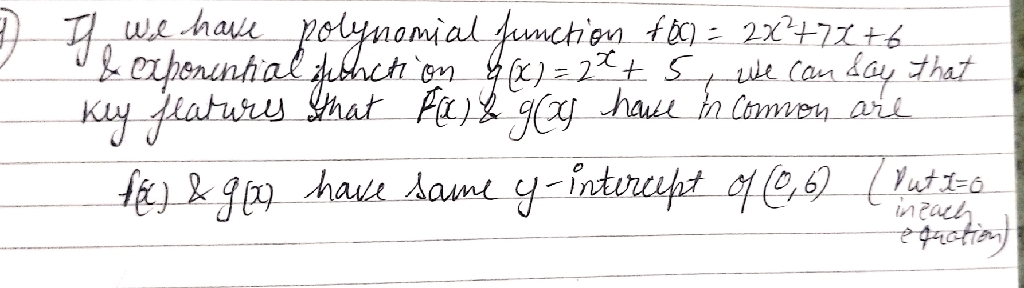 1) If we have polynomial function f(x) = 2x²+7x+6
& exponential function g(x) = 2ˣ + 5, we can say that
key features that F(x) & g(x) have in common are
f(x) & g(x) have same y-intercept of (0,6) (Put x=0
in each
equation)